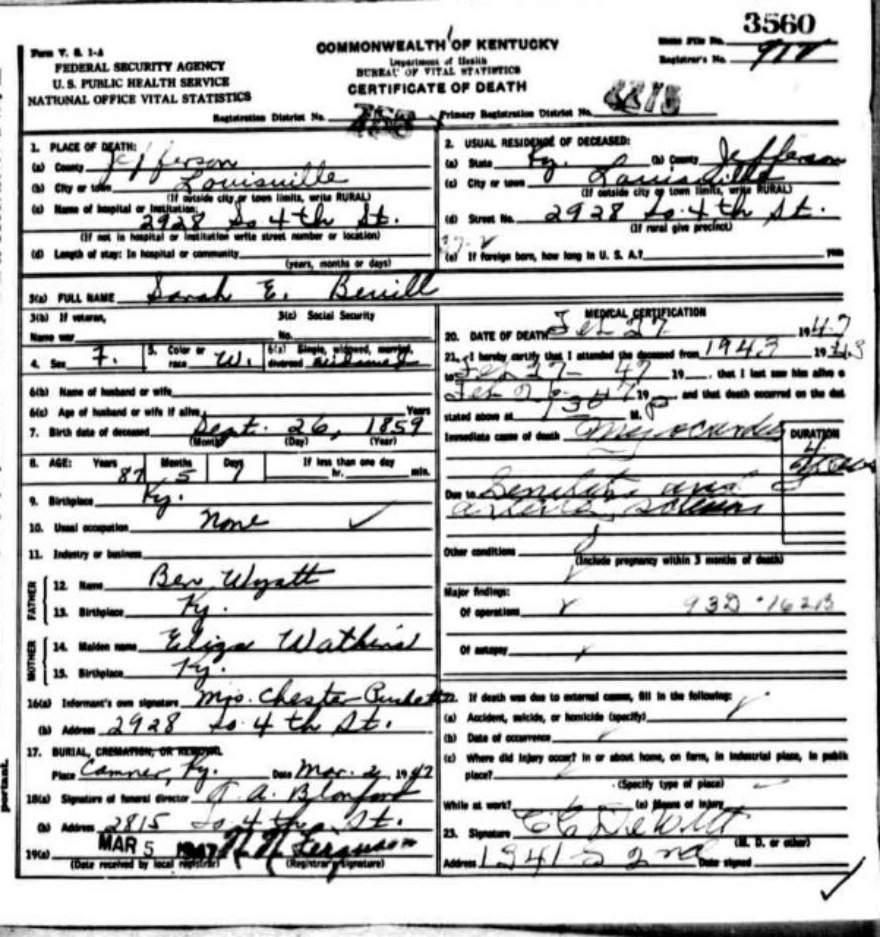 3560
Form V. S. 1-A
COMMONWEALTH OF KENTUCKY
State File No.
FEDERAL SECURITY AGENCY
Department of Health
Registrar's No. 912
U. S. PUBLIC HEALTH SERVICE
BUREAU OF VITAL STATISTICS
NATIONAL OFFICE VITAL STATISTICS
CERTIFICATE OF DEATH
Registration District No.
Primary Registration District No.
1. PLACE OF DEATH:
(a) County Jefferson
(b) City or town Louisville
(If outside city or town limits, write RURAL)
(c) Name of hospital or institution:
2928 So. 4th St.
(If not in hospital or institution write street number or location)
(d) Length of stay: In hospital or community
(years, months or days)
2. USUAL RESIDENCE OF DECEASED:
(a) State Ky. (b) County Jefferson
(c) City or town Louisville
(If outside city or town limits, write RURAL)
(d) Street No. 2928 So. 4th St.
(If rural give precinct)
(e) If foreign born, how long in U. S. A.?
3(a) FULL NAME Sarah E.
3(b) If veteran,
Name war
3(c) Social Security
No.
4. Sex F. 5. Color or race W. 6(a) Single, widowed, married, divorced widowed
6(b) Name of husband or wife
6(c) Age of husband or wife if alive Years
7. Birth date of deceased Sept. 26, 1859
(Month) (Day) (Year)
8. AGE: Years Months Days If less than one day
87 5 1 hr. min.
9. Birthplace Ky.
10. Usual occupation None
11. Industry or business
FATHER
12. Name Ben Wyatt
13. Birthplace Ky.
MOTHER
14. Maiden name Eliza Watkins
15. Birthplace Ky.
16(a) Informant's own signature Mrs. Chester
(b) Address 2928 So. 4th St.
17. BURIAL, CREMATION, OR REMOVAL
Place Canmer, Ky. Date Mar. 2, 1947
18(a) Signature of funeral director A. Blanford
(b) Address 2815 So. 4th St.
19(a) MAR 5 1947 Ferguson
(Date received by local registrar) (Registrar's signature)
MEDICAL CERTIFICATION
20. DATE OF DEATH Feb 27 1947
21. I hereby certify that I attended the deceased from 1943 19
to Feb 27 47 19, that I last saw him alive o
Feb 19, and that death occurred on the dat
stated above at 130 P M.
Immediate cause of death Myocarditis
DURATION
4 years
Due to Senility and
arterio sclerosis
Other conditions
(Include pregnancy within 3 months of death)
Major findings:
Of operations 93D 162B
Of autopsy
22. If death was due to external causes, fill in the following:
(a) Accident, suicide, or homicide (specify)
(b) Date of occurrence
(c) Where did injury occur? In or about home, on farm, in industrial place, in public
place?
(Specify type of place)
While at work? (e) Means of Injury
23. Signature C C DeWitt
(M. D. or other)
Address 1941 S 2nd Date signed
portant.